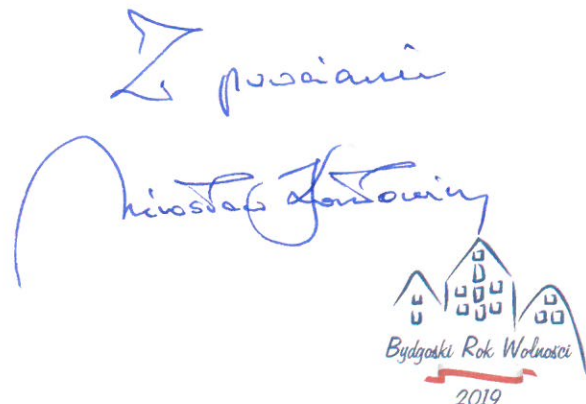 Z poważaniem
Mirosław Kozłowicz
Bydgoski Rok Wolności
2019